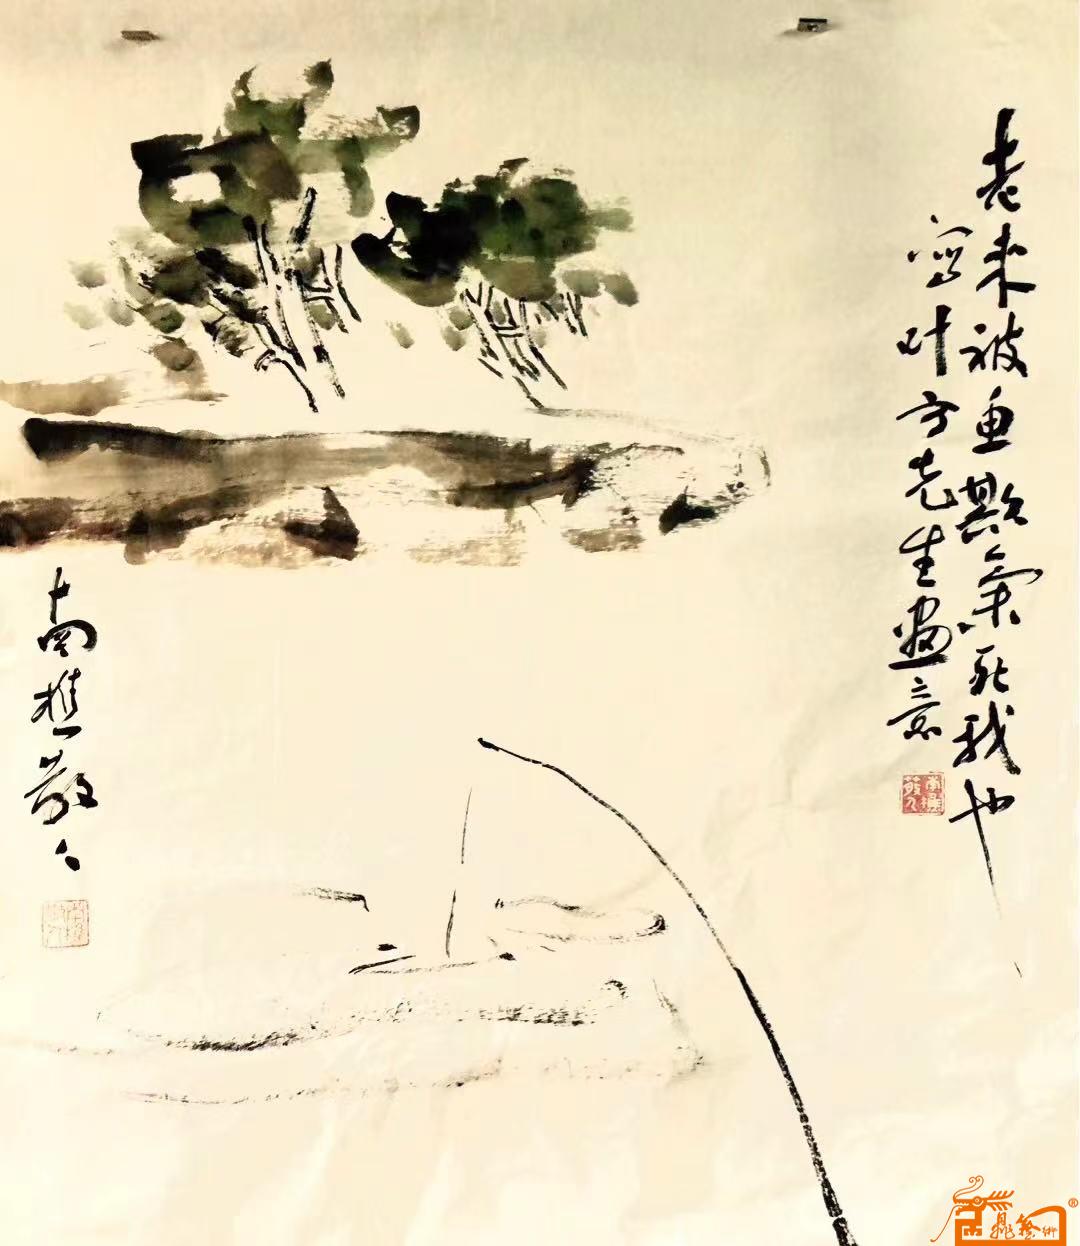 老来被鱼欺气死我也
写叶方先生画意
南樵敬人